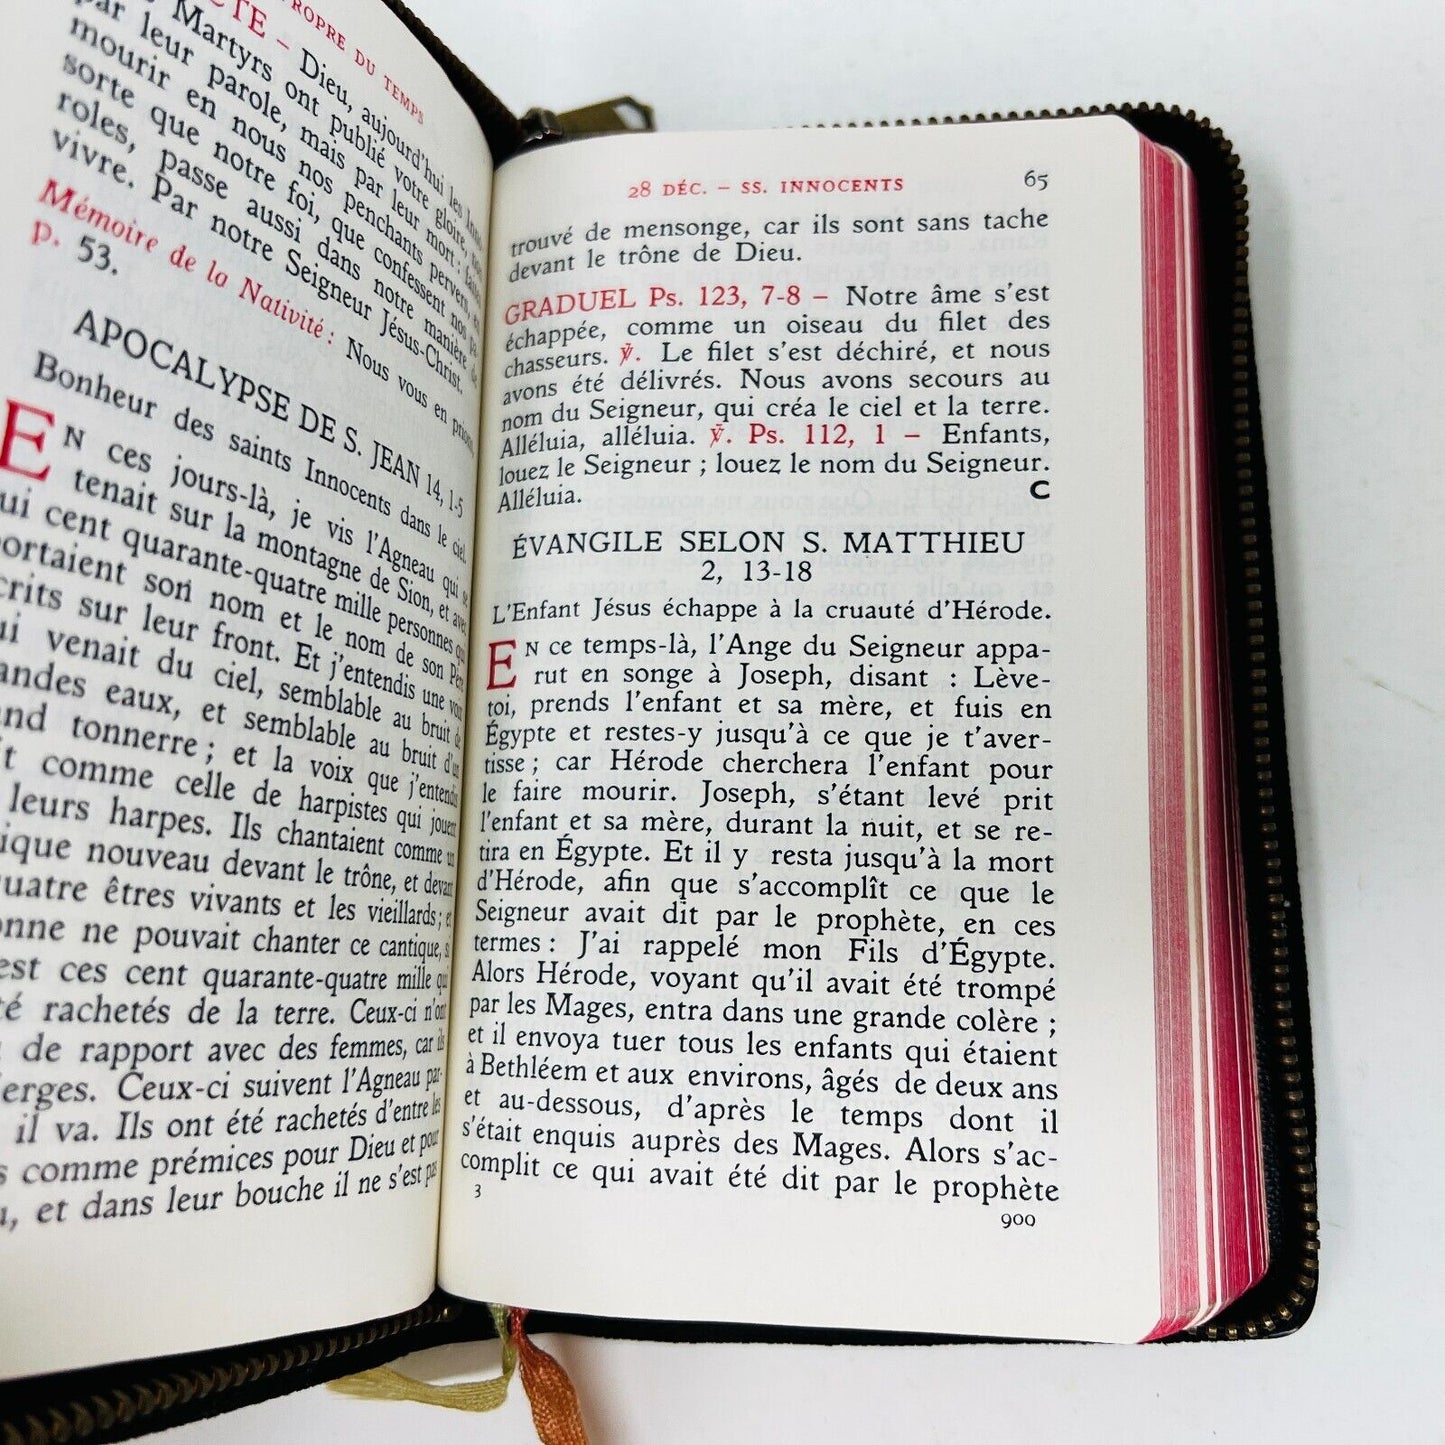 PROPRE DU TEMPS
CTE – Dieu, aujourd'hui les
Martyrs ont publié votre gloire,
par leur parole, mais par leur mort :
mourir en nous nos penchants pervers,
sorte que notre foi, que confessent nos
roles, passe aussi dans notre manière de
vivre. Par notre Seigneur Jésus-Christ.
Mémoire de la Nativité : Nous vous en prions,
p. 53.
APOCALYPSE DE S. JEAN 14, 1-5
Bonheur des saints Innocents dans le ciel.
EN ces jours-là, je vis l'Agneau qui se
tenait sur la montagne de Sion, et avec
ui cent quarante-quatre mille personnes qui
portaient son nom et le nom de son Père
crits sur leur front. Et j'entendis une voix
ui venait du ciel, semblable au bruit de
andes eaux, et semblable au bruit d'un
and tonnerre ; et la voix que j'entendis
it comme celle de harpistes qui jouent
leurs harpes. Ils chantaient comme un
ique nouveau devant le trône, et devant
quatre êtres vivants et les vieillards ; et
onne ne pouvait chanter ce cantique, si
est ces cent quarante-quatre mille qui
té rachetés de la terre. Ceux-ci n'ont
de rapport avec des femmes, car ils
ierges. Ceux-ci suivent l'Agneau par-
il va. Ils ont été rachetés d'entre les
s comme prémices pour Dieu et pour
u, et dans leur bouche il ne s'est pas
28 DÉC. – SS. INNOCENTS 65
trouvé de mensonge, car ils sont sans tache
devant le trône de Dieu.
GRADUEL Ps. 123, 7-8 – Notre âme s'est
échappée, comme un oiseau du filet des
chasseurs. ℣. Le filet s'est déchiré, et nous
avons été délivrés. Nous avons secours au
nom du Seigneur, qui créa le ciel et la terre.
Alléluia, alléluia. ℣. Ps. 112, 1 – Enfants,
louez le Seigneur ; louez le nom du Seigneur.
Alléluia. C
ÉVANGILE SELON S. MATTHIEU
2, 13-18
L'Enfant Jésus échappe à la cruauté d'Hérode.
EN ce temps-là, l'Ange du Seigneur appa-
rut en songe à Joseph, disant : Lève-
toi, prends l'enfant et sa mère, et fuis en
Égypte et restes-y jusqu'à ce que je t'aver-
tisse ; car Hérode cherchera l'enfant pour
le faire mourir. Joseph, s'étant levé prit
l'enfant et sa mère, durant la nuit, et se re-
tira en Égypte. Et il y resta jusqu'à la mort
d'Hérode, afin que s'accomplît ce que le
Seigneur avait dit par le prophète, en ces
termes : J'ai rappelé mon Fils d'Égypte.
Alors Hérode, voyant qu'il avait été trompé
par les Mages, entra dans une grande colère ;
et il envoya tuer tous les enfants qui étaient
à Bethléem et aux environs, âgés de deux ans
et au-dessous, d'après le temps dont il
s'était enquis auprès des Mages. Alors s'ac-
complit ce qui avait été dit par le prophète
3
900